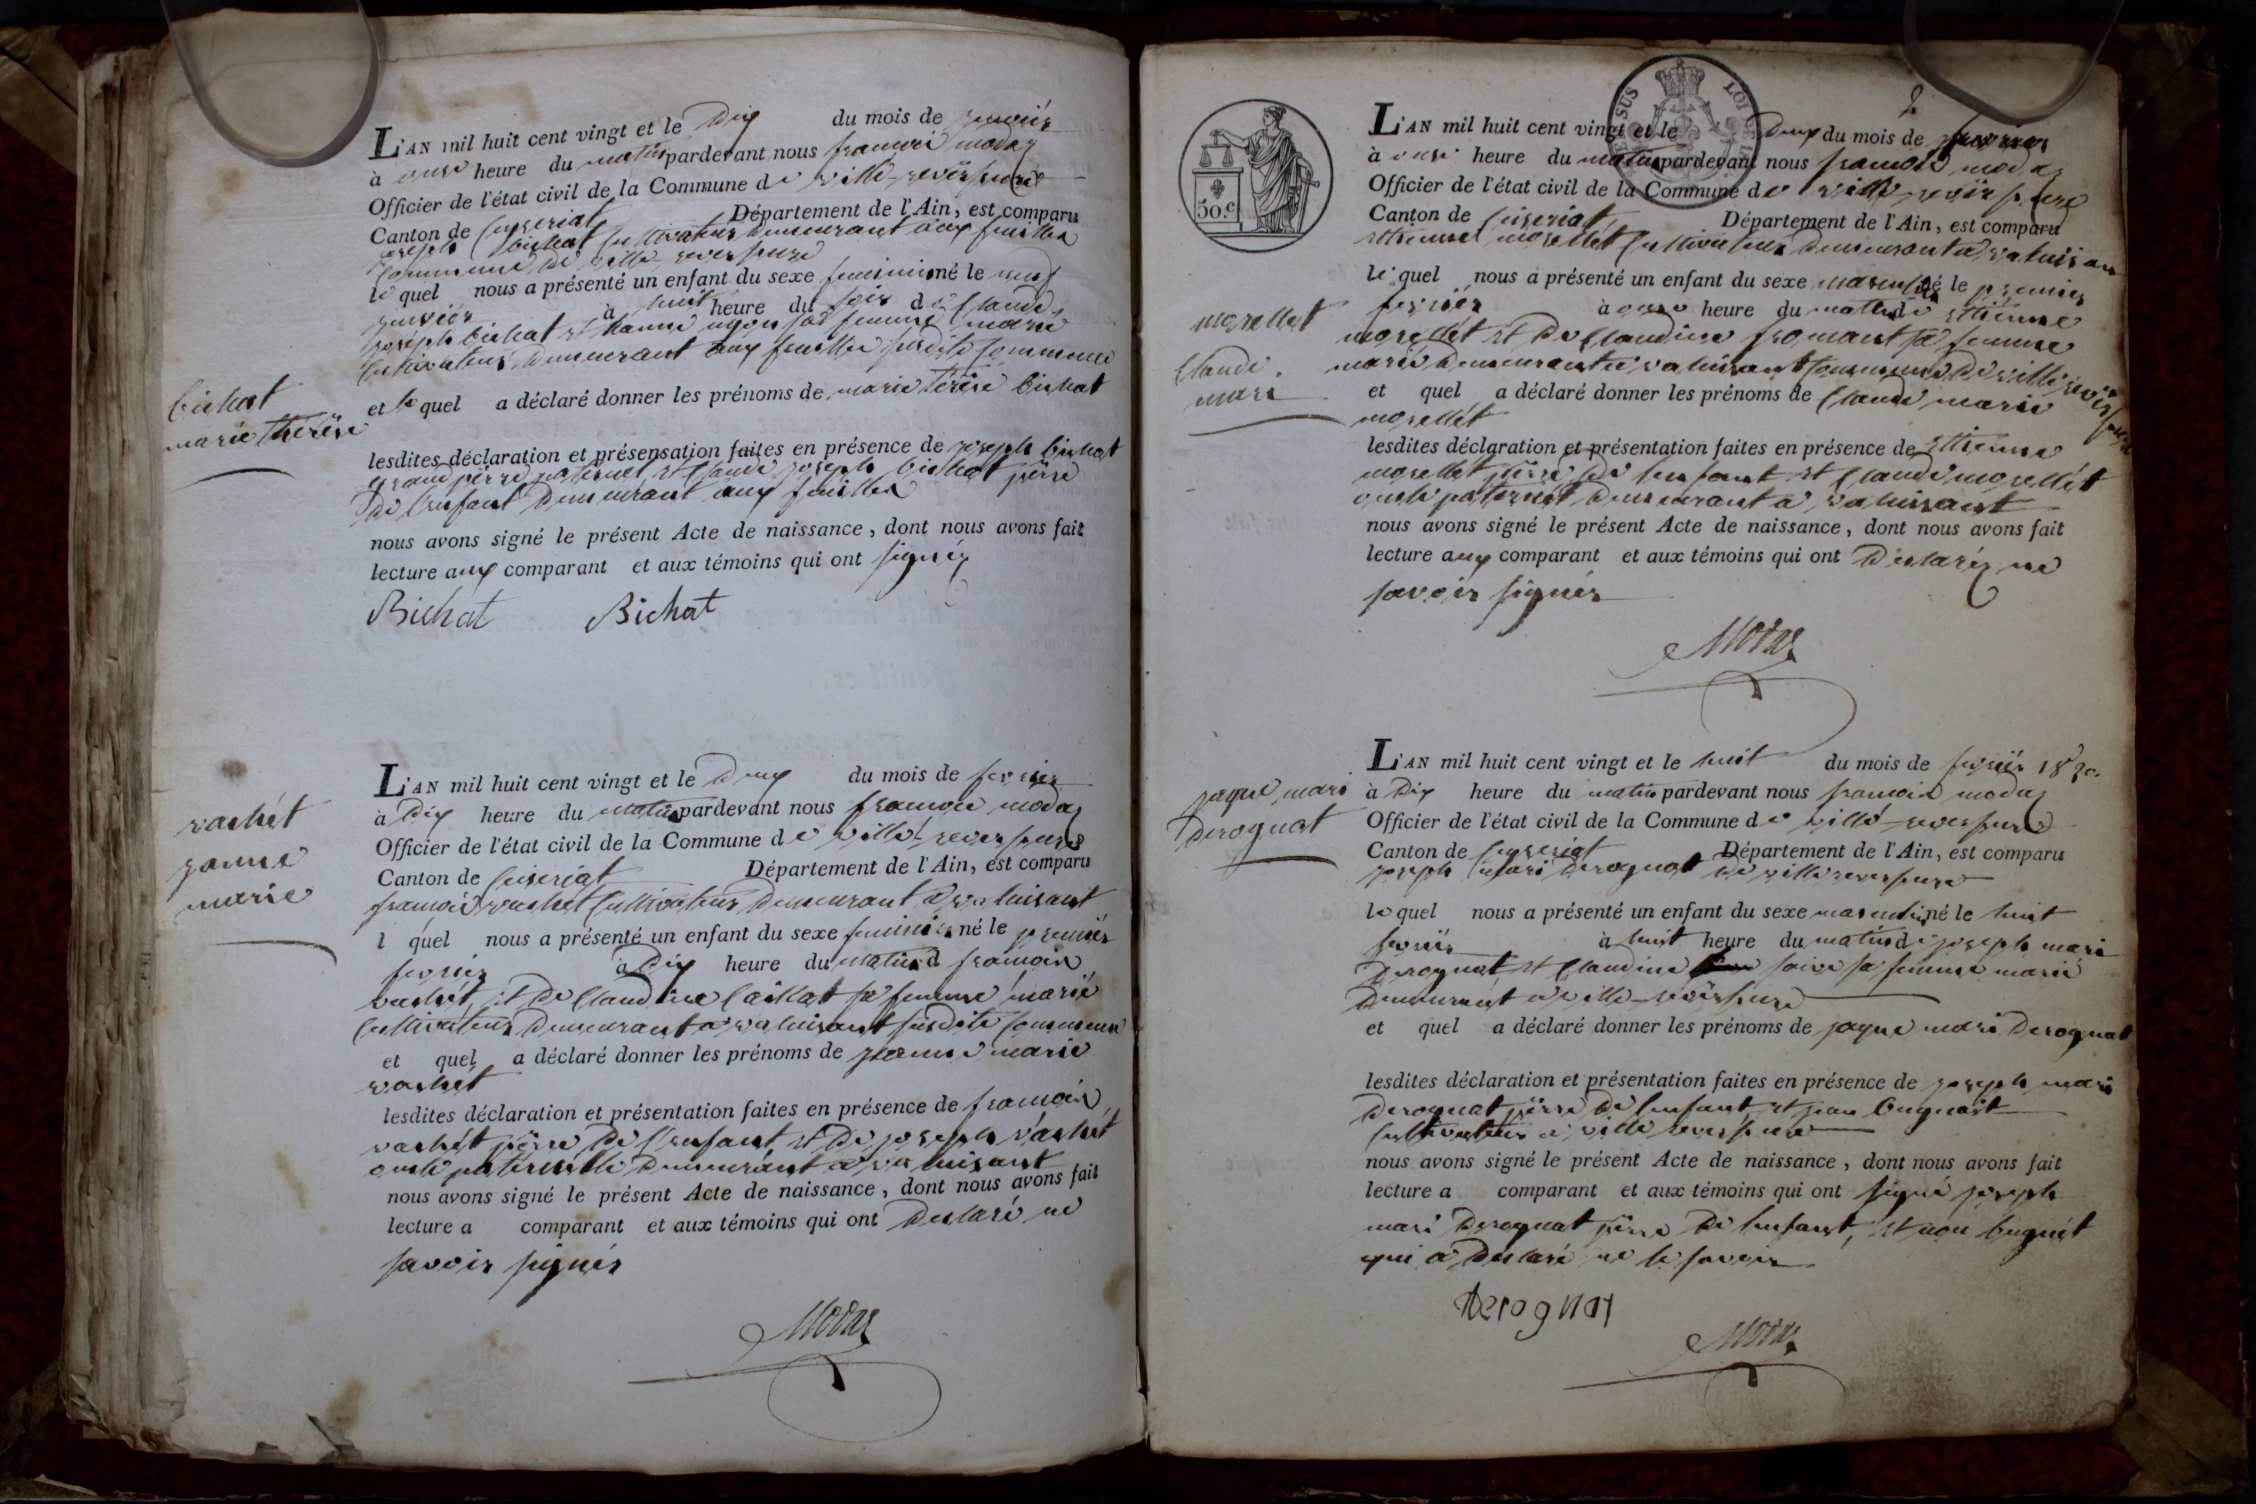 L'AN mil huit cent vingt et le Dix du mois de janviér
à onze heure du matin pardevant nous francois modaz
Officier de l'état civil de la Commune de ville-reversure
Canton de Ceyseriat Département de l'Ain, est comparu
joseph bichat Cultivateur demeurant aux feuilles
Commune de ville-reversure
le quel nous a présenté un enfant du sexe feminin né le neuf
janviér à huit heure du soir de Claude
joseph bichat et sa femme marié
Cultivateur demeurant aux feuilles susdite Commune
bichat
marie thérèse
et le quel a déclaré donner les prénoms de marie térèse bichat
lesdites déclaration et présensation faites en présence de joseph bichat
grand pérre paternel et Claude joseph bichat pérre
de l'enfant demeurant aux feuilles
nous avons signé le présent Acte de naissance, dont nous avons fait
lecture aux comparant et aux témoins qui ont signéz
Bichat Bichat
L'AN mil huit cent vingt et le Deux du mois de fevrier
à Dix heure du matin pardevant nous francois modaz
Officier de l'état civil de la Commune de ville-reversure
Canton de Ceseriat Département de l'Ain, est comparu
francois vachét Cultivateur demeurant a valuisant
vachét
janne
marie
l quel nous a présenté un enfant du sexe feminin né le premiér
fevriér à Dix heure du matin d francois
vachét et de Claudine Caillat sa femme marié
Cultivateur demeurant a valuisant susdite Commune
et quel a déclaré donner les prénoms de janne marie
vachét
lesdites déclaration et présentation faites en présence de francois
vachét pérre de l'enfant et de joseph vachét
oncle paternelle demeurant a valuisant
nous avons signé le présent Acte de naissance, dont nous avons fait
lecture a comparant et aux témoins qui ont Declaré ne
savoir signér
Modaz
2
50.c
L'AN mil huit cent vingt et le Deux du mois de fevrier
à onze heure du matin pardevant nous francois modaz
Officier de l'état civil de la Commune de ville-reversure
Canton de Ceiseriat Département de l'Ain, est comparu
ettienne morellét Cultivateur demeurant a valuisant
le quel nous a présenté un enfant du sexe masculin né le premier
fevriér à onze heure du matin de ettienne
morellét et de Claudine fromant sa femme
marié demeurant a valuisant Commune de ville reversure
morellet
Claude
mari
et quel a déclaré donner les prénoms de Claude marie
morellét
lesdites déclaration et présentation faites en présence de ettienne
morellet pérre de l'enfant et Claude morellét
oncle paternél demeurant a valuisant
nous avons signé le présent Acte de naissance, dont nous avons fait
lecture aux comparant et aux témoins qui ont Déclaréz ne
savoir signér
Modaz
L'AN mil huit cent vingt et le huit du mois de fevriér 1820
à Dix heure du matin pardevant nous francois modaz
Officier de l'état civil de la Commune de ville-reversure
Canton de Ceyseriat Département de l'Ain, est comparu
joseph mari Derognat de ville reversure
jaque mari
Derognat
le quel nous a présenté un enfant du sexe masculin né le huit
fevriér à huit heure du matin de joseph mari
Derognat et Claudine sa femme marié
demeurant a ville-reversure
et quel a déclaré donner les prénoms de jaque mari Derognat
lesdites déclaration et présentation faites en présence de joseph mari
Derognat pérre de l'enfant et jean
Cultivateur a ville reversure
nous avons signé le présent Acte de naissance, dont nous avons fait
lecture a comparant et aux témoins qui ont signé joseph
mari Derognat pérre de l'enfant, et non buguét
qui a Declaré ne le savoir
derognat
Modaz